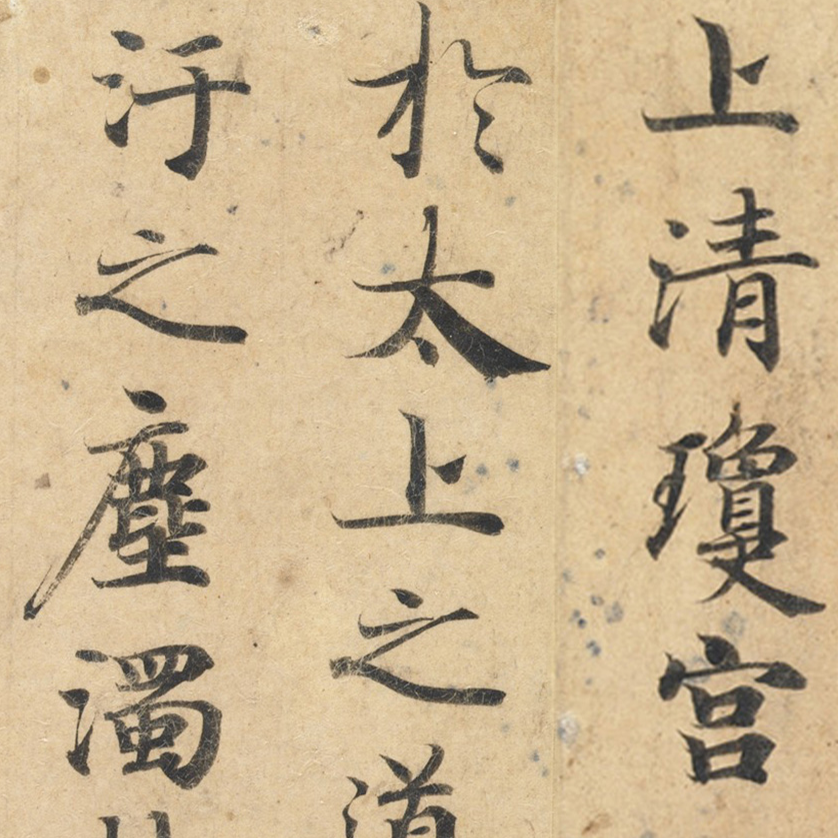 上清瓊宫
於太上之道
汙之塵濁